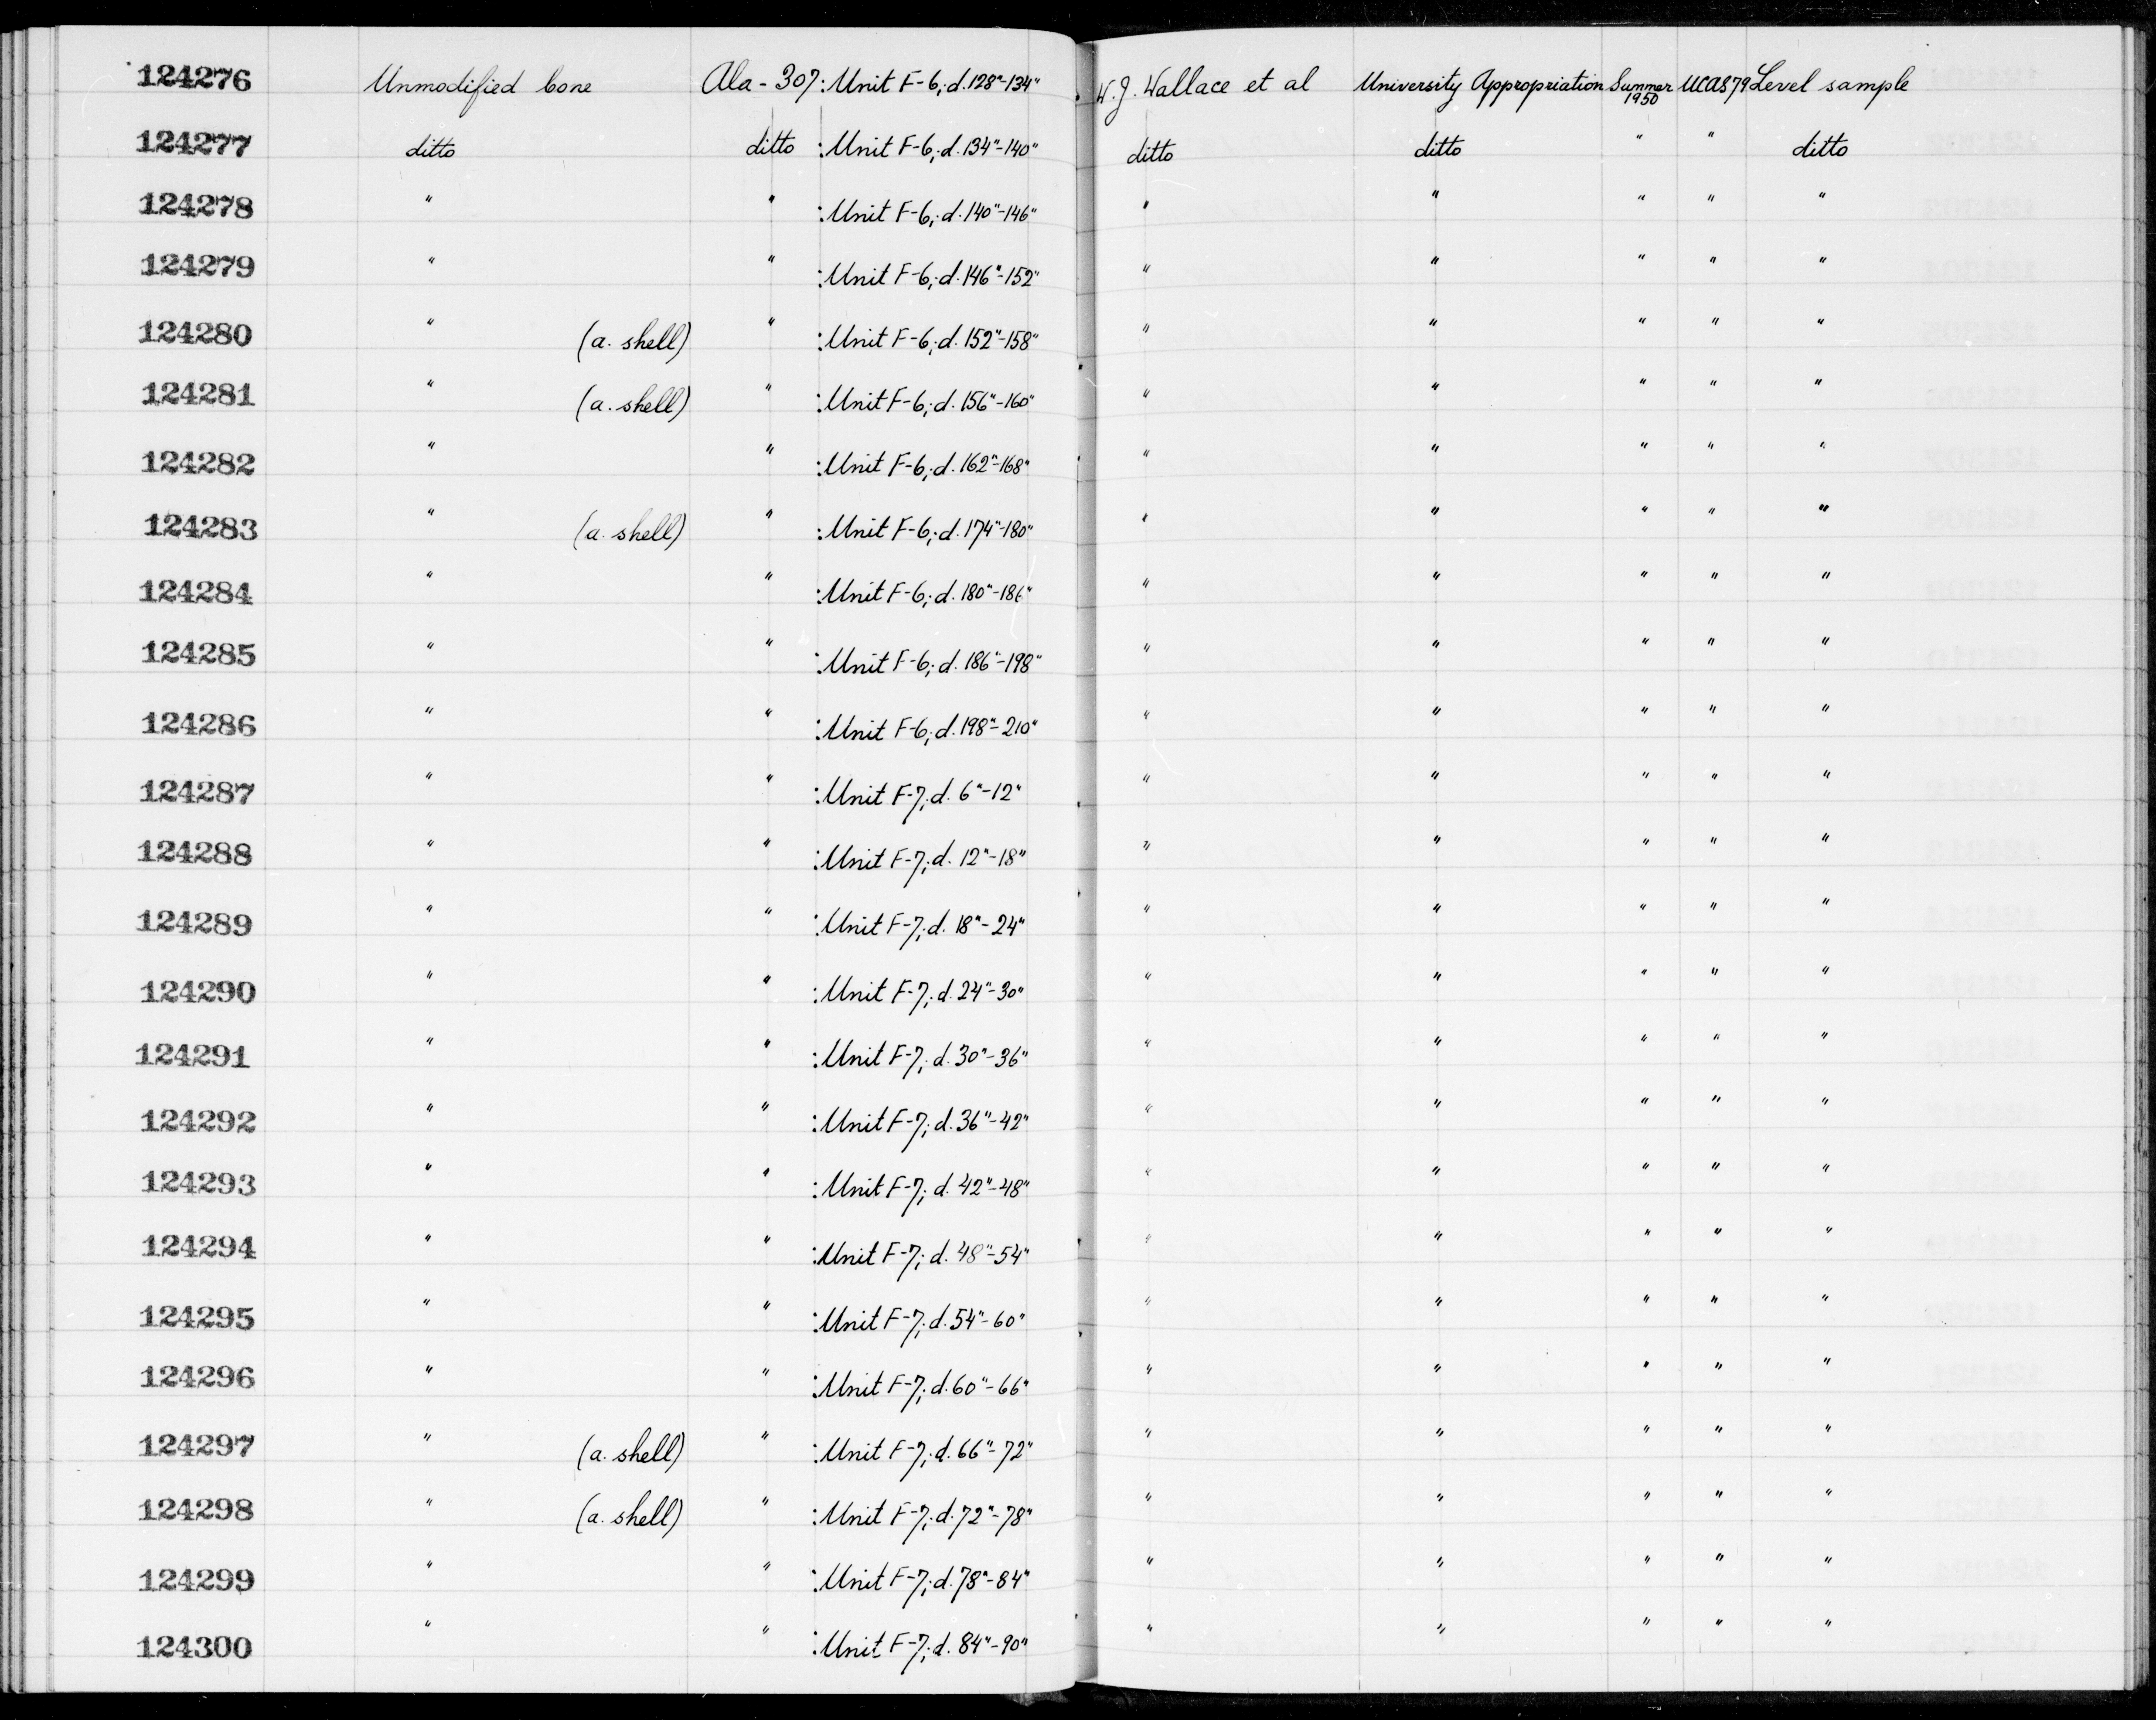 124276 Unmodified bone Ala-307: Unit F-6; d. 128"-134" W.J. Wallace et al University Appropriation Summer 1950 UCAS79 Level sample
124277 ditto ditto : Unit F-6; d. 134"-140" ditto ditto " " ditto
124278 " " : Unit F-6; d. 140"-146" " " " " "
124279 " " : Unit F-6; d. 146"-152" " " " " "
124280 " (a. shell) " : Unit F-6; d. 152"-158" " " " " "
124281 " (a. shell) " : Unit F-6; d. 156"-160" " " " " "
124282 " " : Unit F-6; d. 162"-168" " " " " "
124283 " (a. shell) " : Unit F-6; d. 174"-180" " " " " "
124284 " " : Unit F-6; d. 180"-186" " " " " "
124285 " " : Unit F-6; d. 186"-198" " " " " "
124286 " " : Unit F-6; d. 198"-210" " " " " "
124287 " " : Unit F-7; d. 6"-12" " " " " "
124288 " " : Unit F-7; d. 12"-18" " " " " "
124289 " " : Unit F-7; d. 18"-24" " " " " "
124290 " " : Unit F-7; d. 24"-30" " " " " "
124291 " " : Unit F-7; d. 30"-36" " " " " "
124292 " " : Unit F-7; d. 36"-42" " " " " "
124293 " " : Unit F-7; d. 42"-48" " " " " "
124294 " " : Unit F-7; d. 48"-54" " " " " "
124295 " " : Unit F-7; d. 54"-60" " " " " "
124296 " " : Unit F-7; d. 60"-66" " " " " "
124297 " (a. shell) " : Unit F-7; d. 66"-72" " " " " "
124298 " (a. shell) " : Unit F-7; d. 72"-78" " " " " "
124299 " " : Unit F-7; d. 78"-84" " " " " "
124300 " " : Unit F-7; d. 84"-90" " " " " "